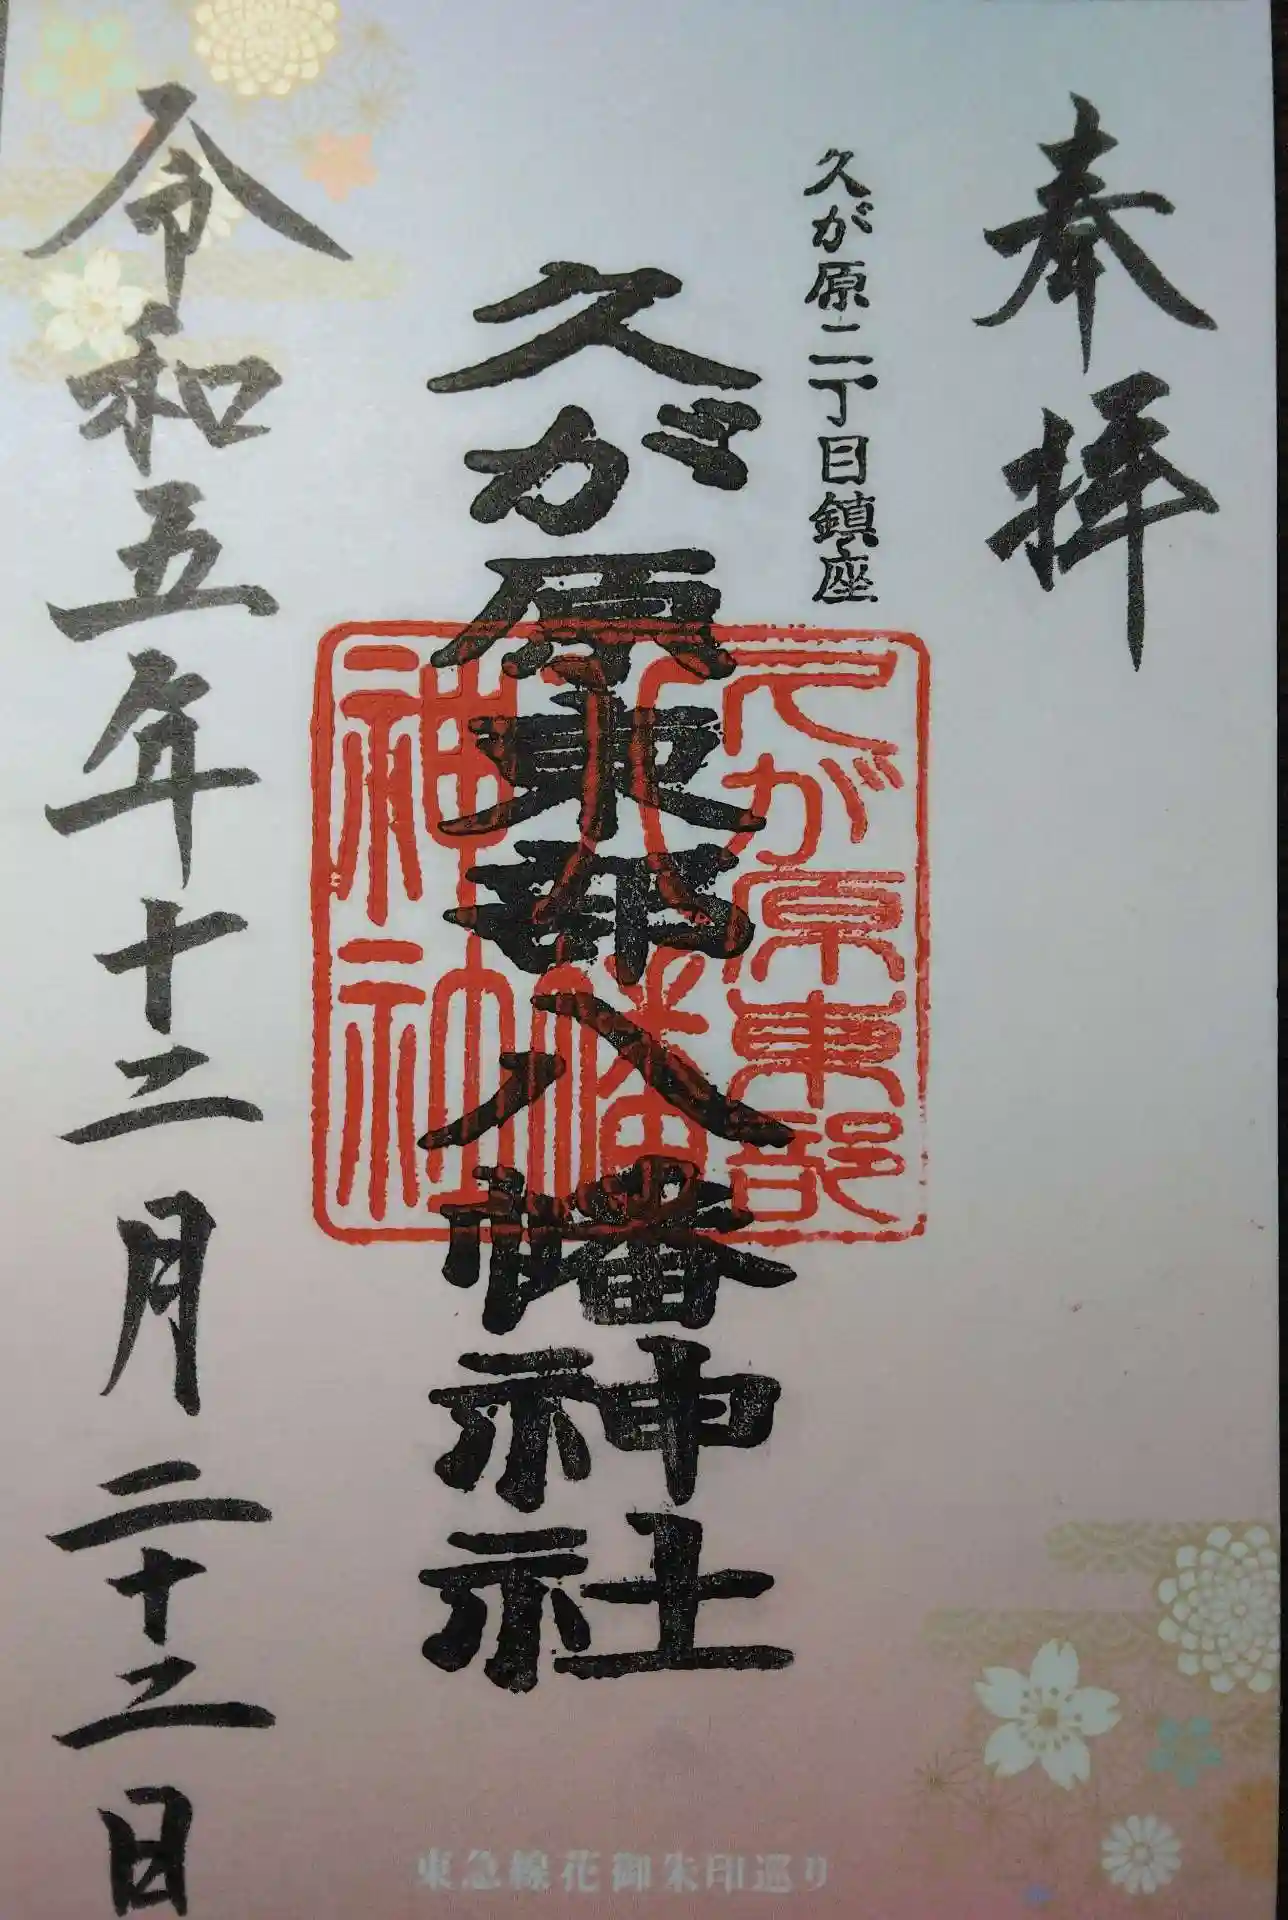 奉拝
久が原二丁目鎮座
久が原東部八幡神社
久が原東部
八幡
神社
令和五年十二月二十二日
東急線花御朱印巡り